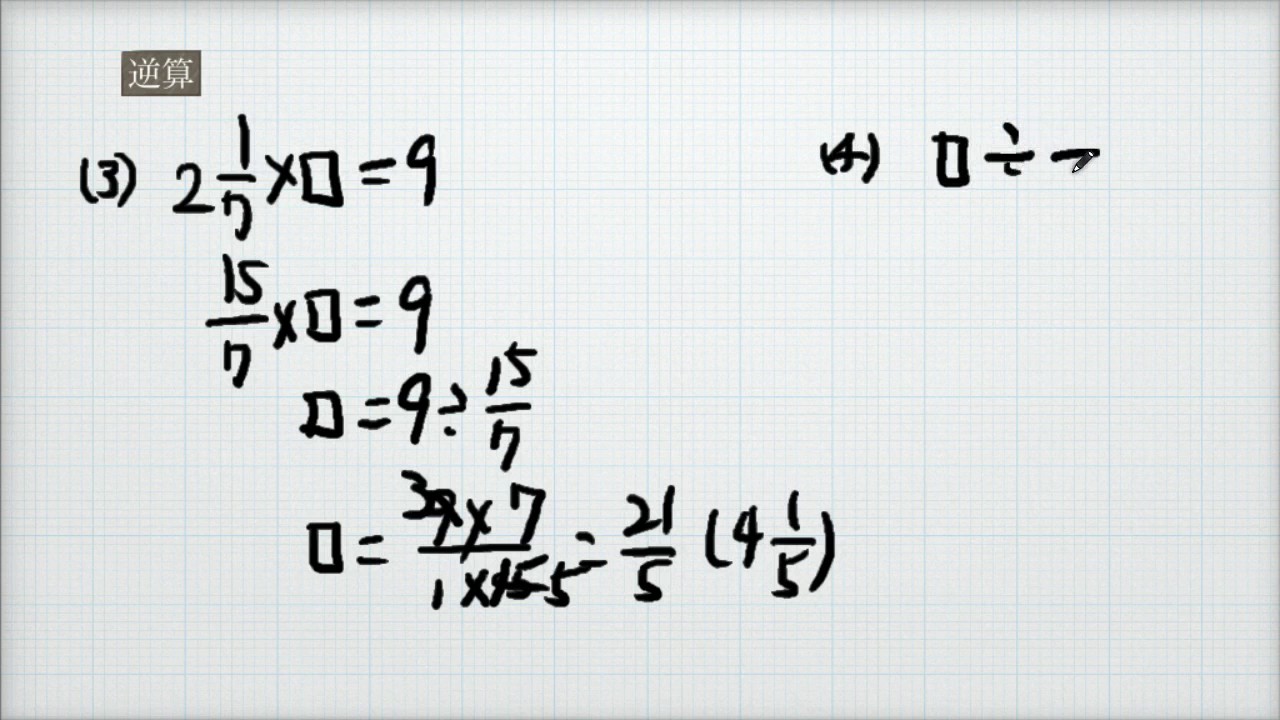 逆算
(3) 2 1/7 × □ = 9
15/7 × □ = 9
□ = 9 ÷ 15/7
□ = 3 9 × 7 / 1 × 15 5 = 21/5 (4 1/5)
(4) □ ÷ −